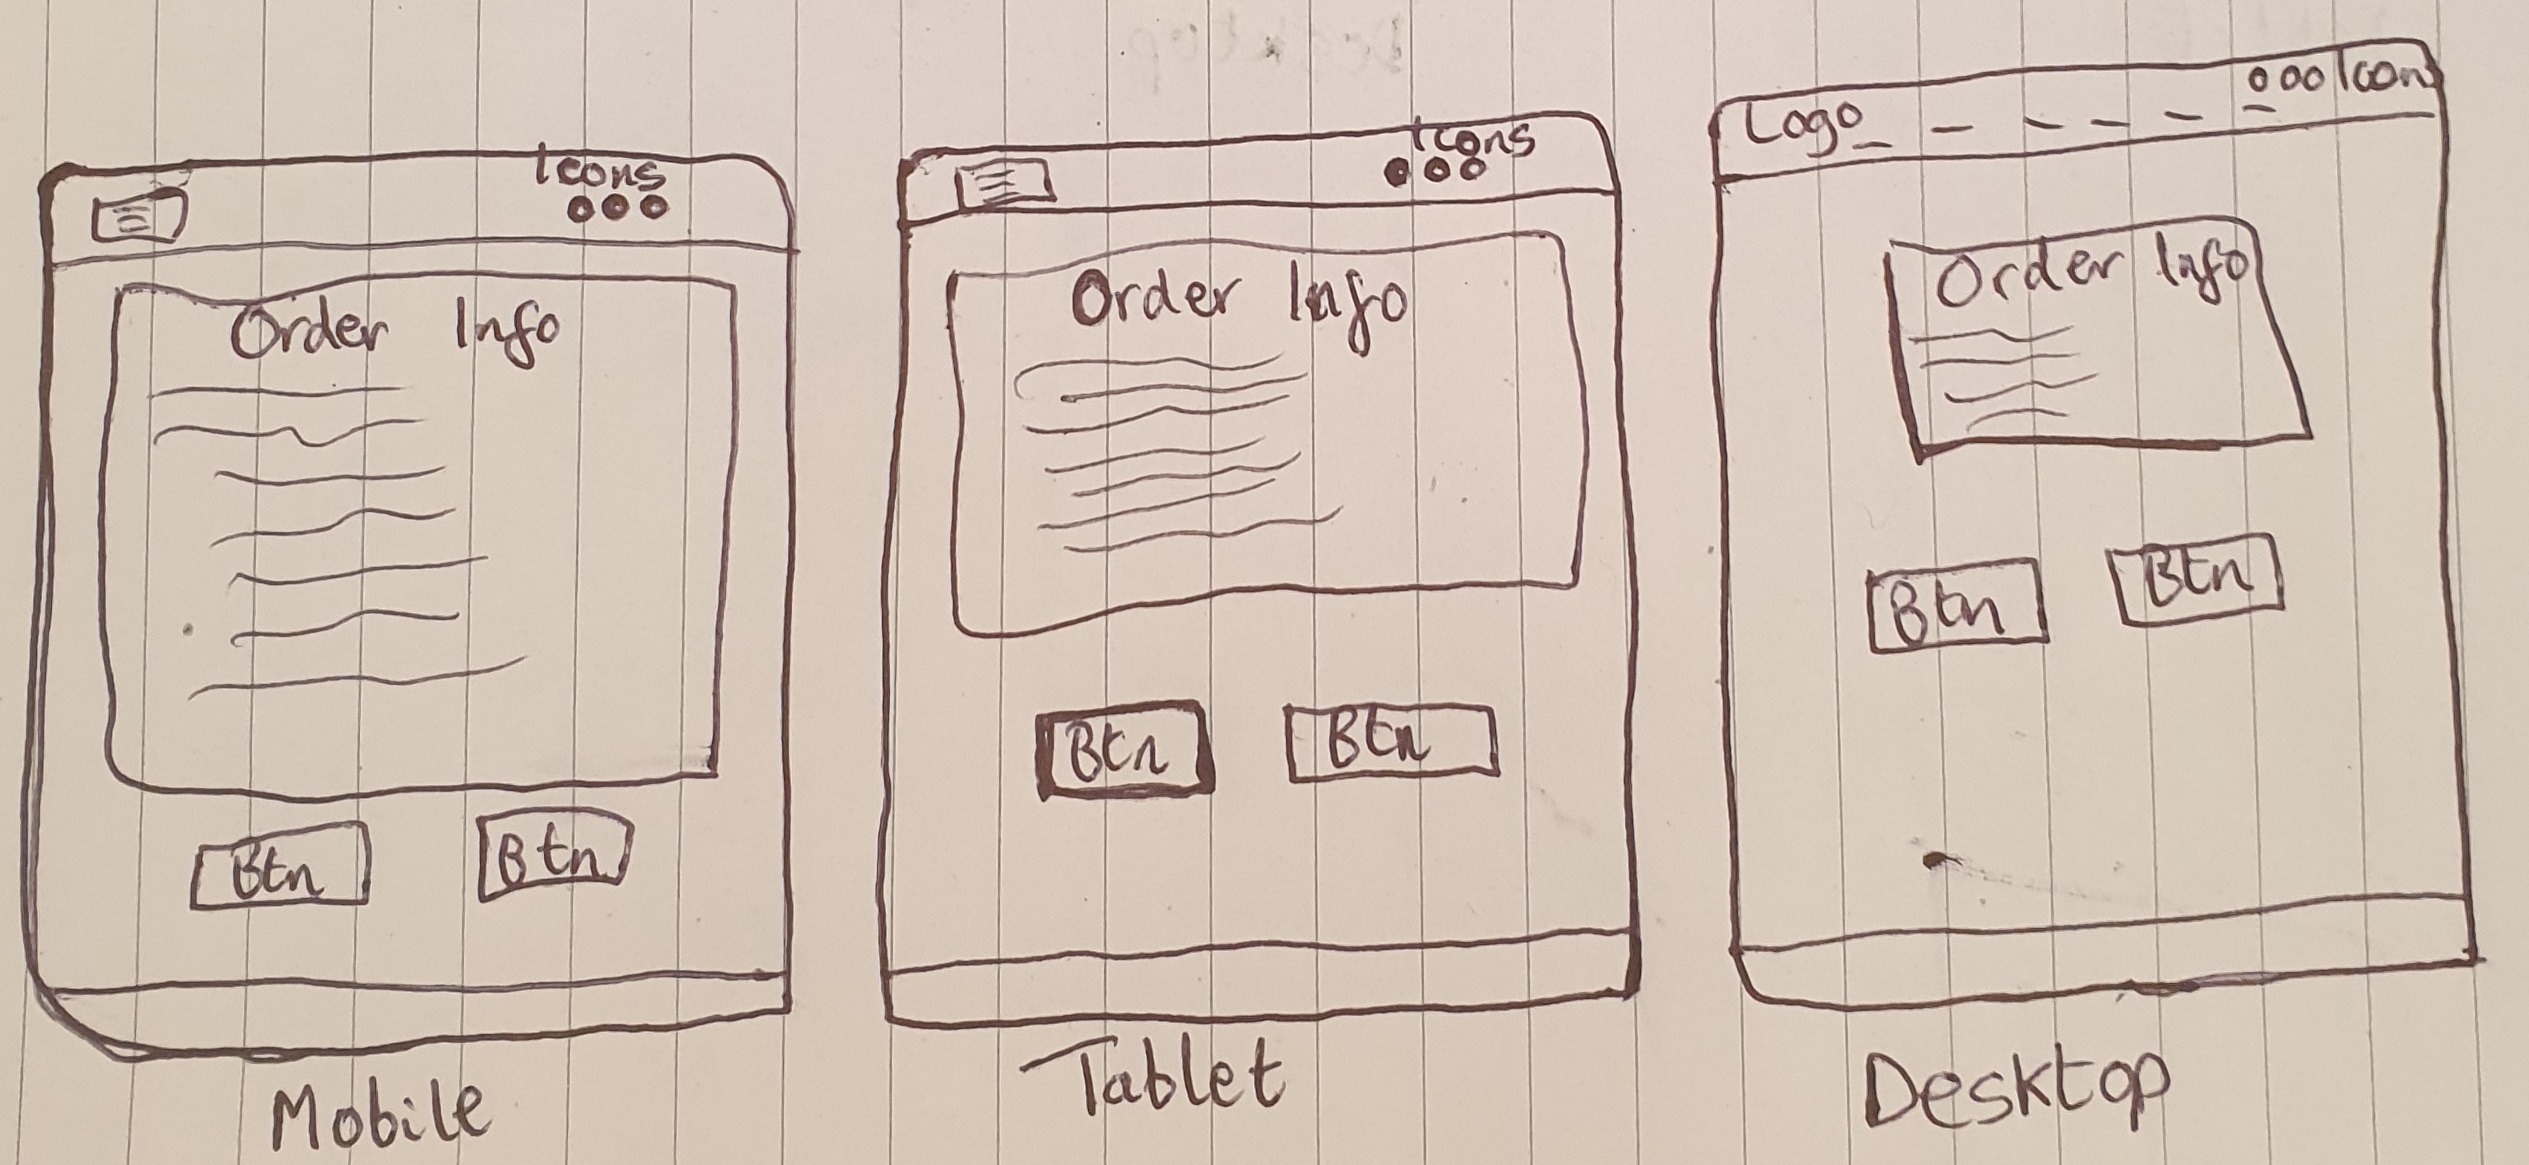 Icons
Order Info
Btn Btn
Mobile
Icons
Order Info
Btn Btn
Tablet
Logo Icon
Order Info
Btn Btn
Desktop